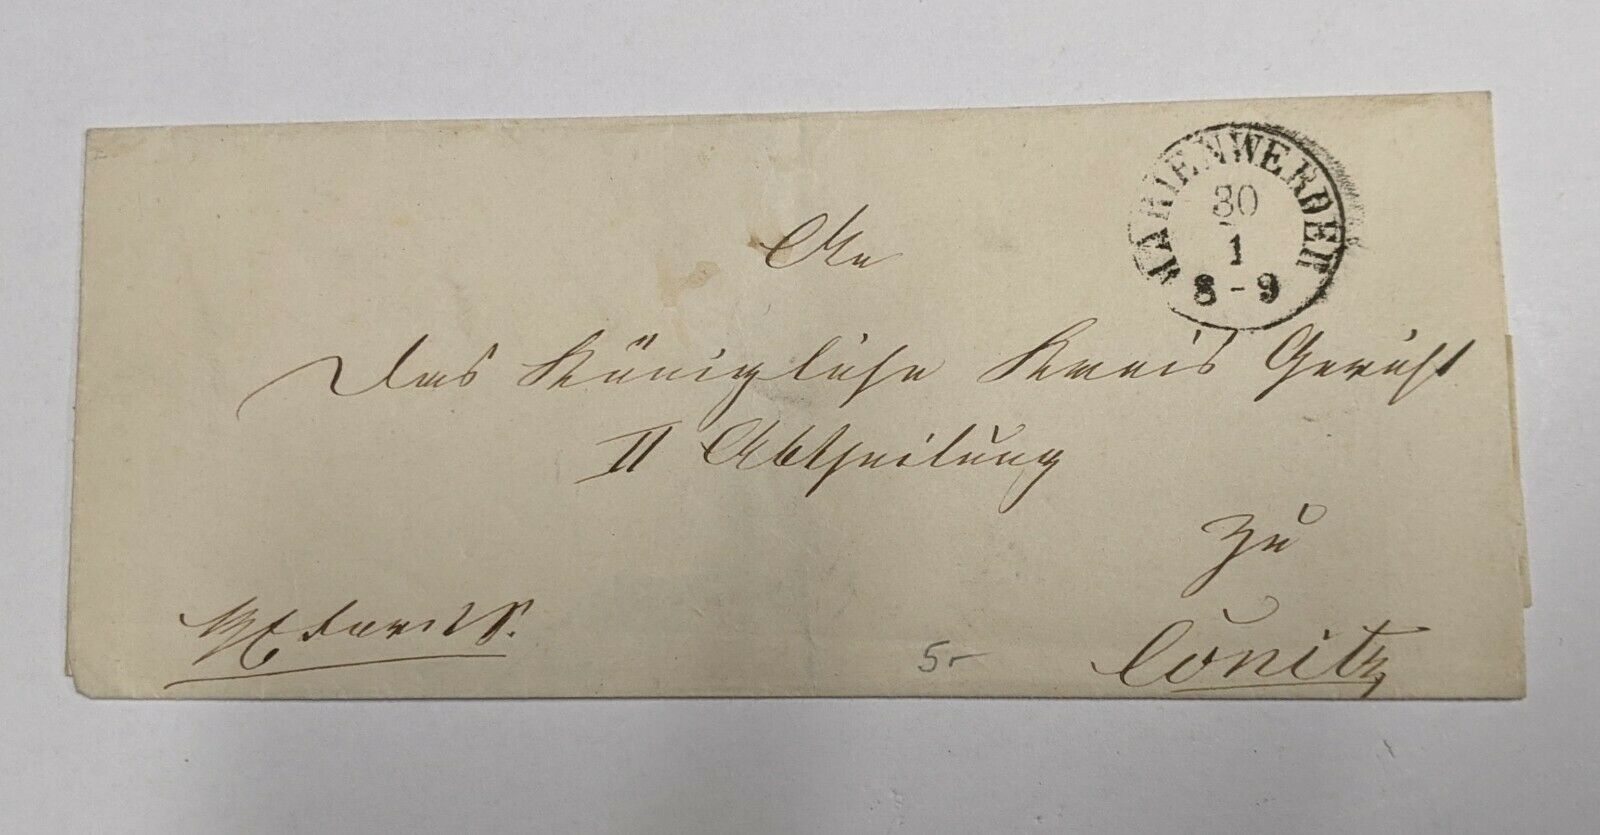 MARIENWERDER
30
1
8-9
An
das Königliche Kreis Gericht
II Abtheilung
zu
Conitz
5-